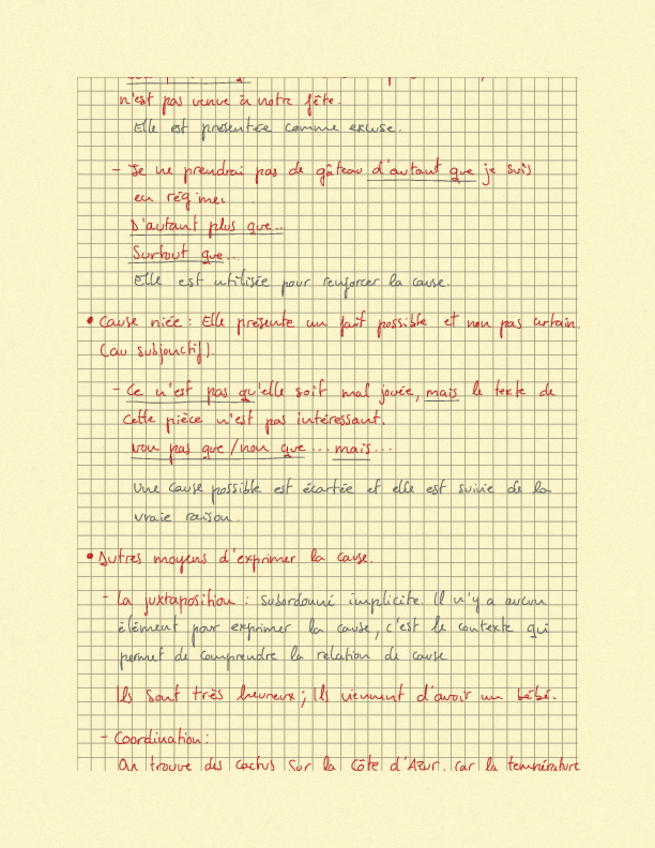 n'est pas venue à notre fête.
Elle est présentée comme excuse.
- Je ne prendrai pas de gâteau d'autant que je suis
en régime.
D'autant plus que...
Surtout que...
Elle est utilisée pour renforcer la cause.
• Cause niée : Elle présente un fait possible et non pas certain
(au subjonctif).
- Ce n'est pas qu'elle soit mal jouée, mais le texte de
cette pièce n'est pas intéressant.
Non pas que / non que ... mais ...
Une cause possible est écartée et elle est suivie de la
vraie raison
• Autres moyens d'exprimer la cause.
- La juxtaposition : subordonné implicite. Il n'y a aucun
élément pour exprimer la cause, c'est le contexte qui
permet de comprendre la relation de cause
Ils sont très heureux ; Ils viennent d'avoir un bébé.
- Coordination :
On trouve des cactus sur la Côte d'Azur, car la température